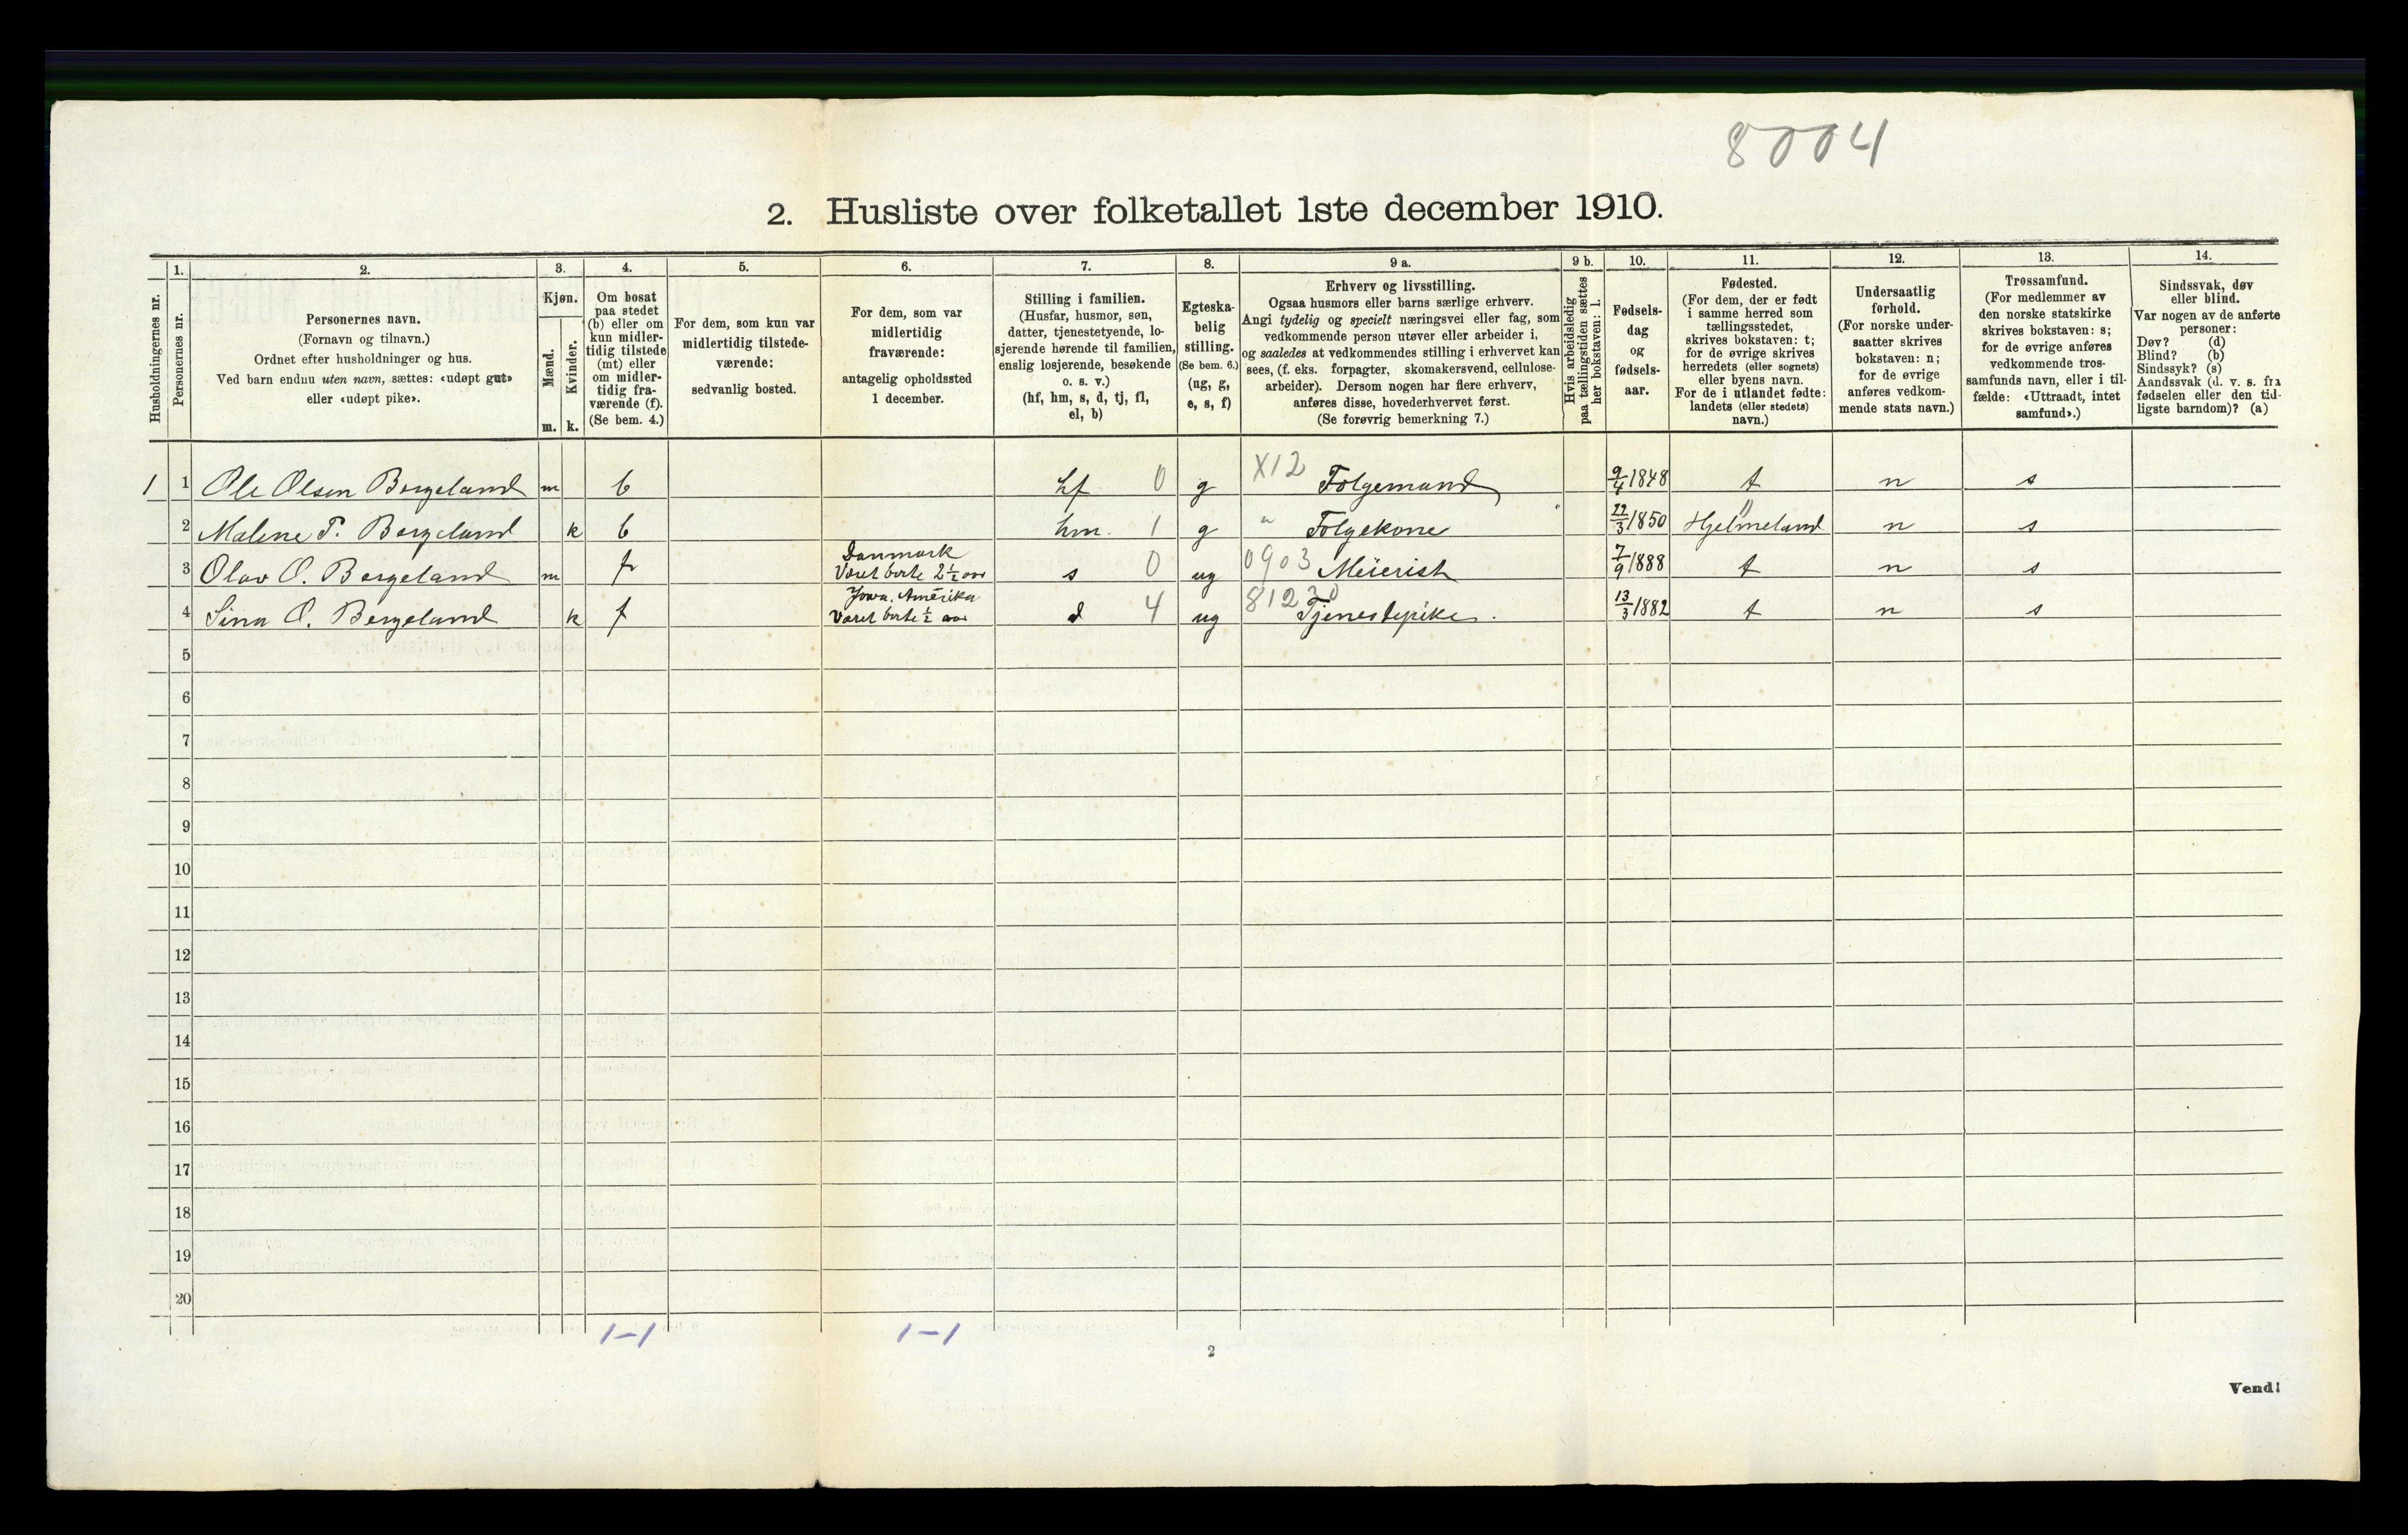 8004
2. Husliste over folketallet 1ste december 1910.
Husholdningernes nr.
1.
Personernes nr.
2.
Personernes navn.
(Fornavn og tilnavn.)
Ordnet efter husholdninger og hus.
Ved barn endnu uten navn, sættes: «udøpt gut»
eller «udøpt pike».
3.
Kjøn.
Mænd.
Kvinder.
m. k.
4.
Om bosat
paa stedet
(b) eller om
kun midler-
tidig tilstede
(mt) eller
om midler-
tidig fra-
værende (f).
(Se bem. 4.)
5.
For dem, som kun var
midlertidig tilstede-
værende:
sedvanlig bosted.
6.
For dem, som var
midlertidig
fraværende:
antagelig opholdssted
1 december.
7.
Stilling i familien.
(Husfar, husmor, søn,
datter, tjenestetyende, lo-
sjerende hørende til familien,
enslig losjerende, besøkende
o. s. v.)
(hf, hm, s, d, tj, fl,
el, b)
8.
Egteska-
belig
stilling.
(Se bem. 6.)
(ug, g,
e, s, f)
9 a.
Erhverv og livsstilling.
Ogsaa husmors eller barns særlige erhverv.
Angi tydelig og specielt næringsvei eller fag, som
vedkommende person utøver eller arbeider i,
og saaledes at vedkommendes stilling i erhvervet kan
sees, (f. eks. forpagter, skomakersvend, cellulose-
arbeider). Dersom nogen har flere erhverv,
anføres disse, hovederhvervet først.
(Se forøvrig bemerkning 7.)
9 b.
Hvis arbeidsledig
paa tællingstiden sættes
her bokstaven: l.
10.
Fødsels-
dag
og
fødsels-
aar.
11.
Fødested.
(For dem, der er født
i samme herred som
tællingsstedet,
skrives bokstaven: t;
for de øvrige skrives
herredets (eller sognets)
eller byens navn.
For de i utlandet fødte:
landets (eller stedets)
navn.)
12.
Undersaatlig
forhold.
(For norske under-
saatter skrives
bokstaven: n;
for de øvrige
anføres vedkom-
mende stats navn.)
13.
Trossamfund.
(For medlemmer av
den norske statskirke
skrives bokstaven: s;
for de øvrige anføres
vedkommende tros-
samfunds navn, eller i til-
fælde: «Uttraadt, intet
samfund».)
14.
Sindssvak, døv
eller blind.
Var nogen av de anførte
personer:
Døv? (d)
Blind? (b)
Sindssyk? (s)
Aandssvak (d. v. s. fra
fødselen eller den tid-
ligste barndom)? (a)
1 1 Ole Olsen Bergeland m b hf 0 g X12 Folgemand 9/4 1848 t n s
2 Malene T. Bergeland k b hm. 1 g " Folgekone 22/3 1850 Hjelmeland n s
3 Olav O. Bergeland m f Danmark
Været borte 2½ aar s 0 ug 0903 Meierist 7/9 1888 t n s
4 Sina O. Bergeland k f Jowa. Amerika
Været borte ½ aar d 4 ug 81230 Tjenestepike. 13/3 1882 t n s
5
6
7
8
9
10
11
12
13
14
15
16
17
18
19
20
1-1 1-1
2
Vend!